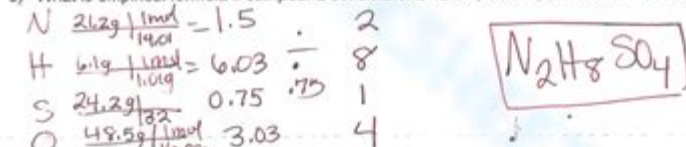 N 21.2g | 1mol / 14.01 = 1.5 ÷ .75 2
H 6.1g | 1mol / 1.01g = 6.03 8
S 24.2g | / 32 0.75 1
O 48.5g | 1mol 3.03 4
N₂H₈SO₄